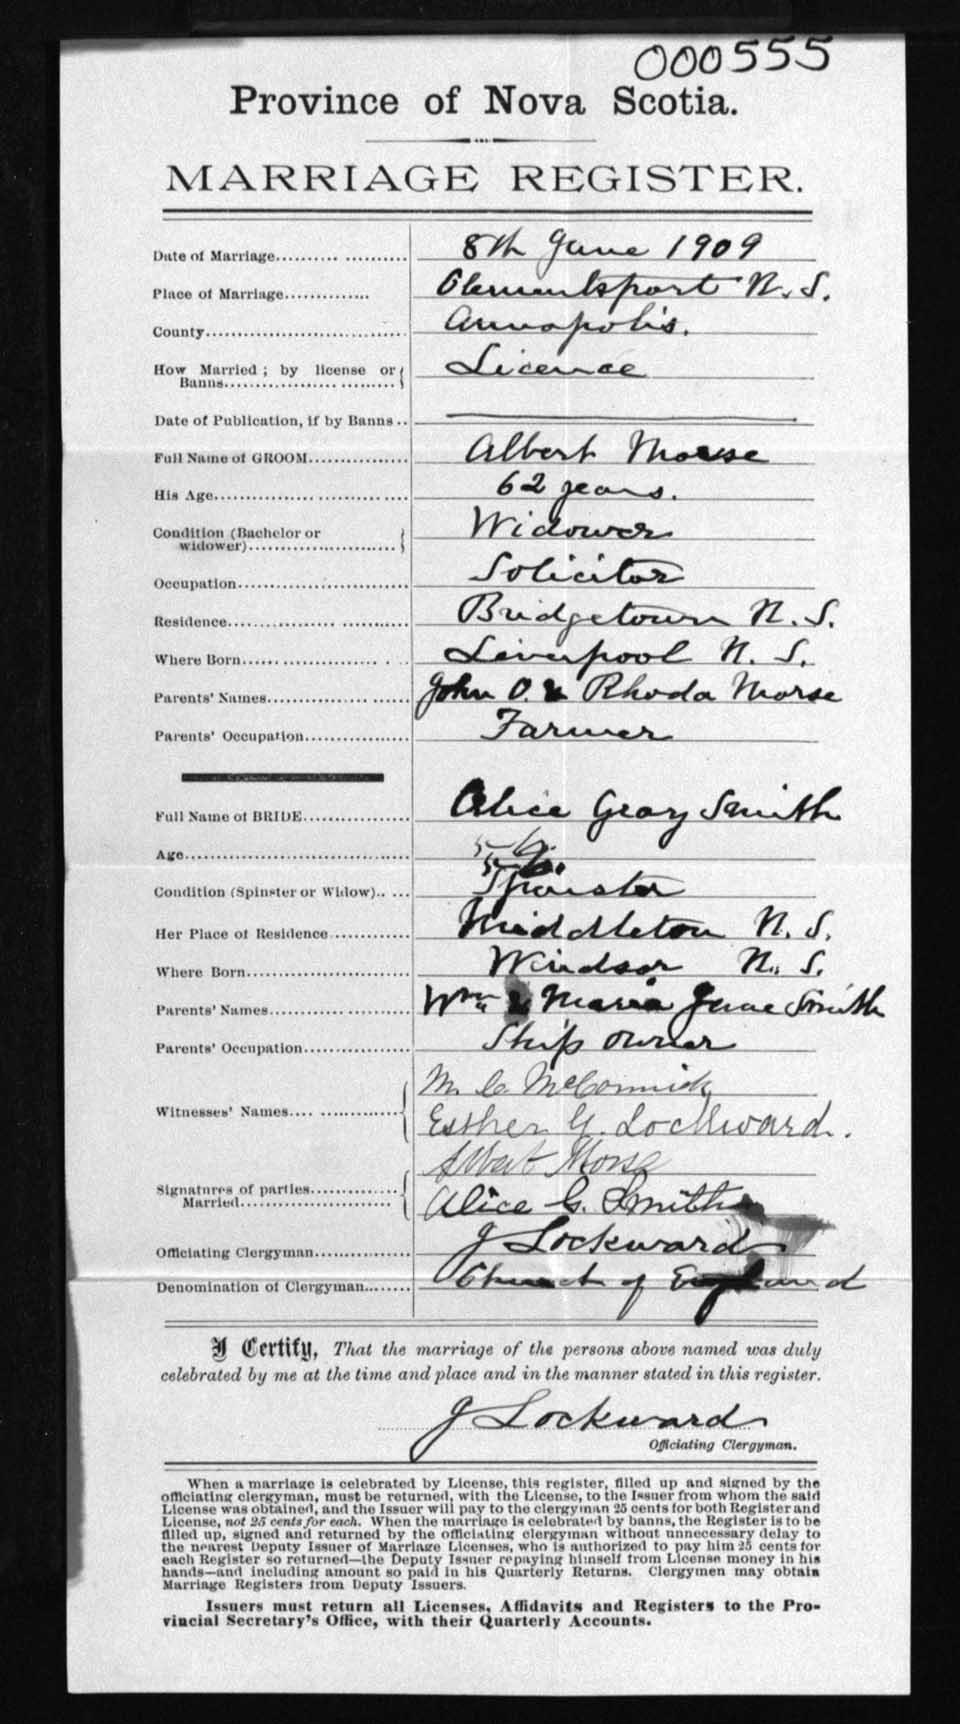 000555
Province of Nova Scotia.
MARRIAGE REGISTER.
Date of Marriage 8th June 1909
Place of Marriage Clementsport N.S.
County Annapolis.
How Married; by license or
Banns Licence
Date of Publication, if by Banns
Full Name of GROOM Albert Morse
His Age 62 years.
Condition (Bachelor or
widower) Widower
Occupation Solicitor
Residence Bridgetown N.S.
Where Born Liverpool N.S.
Parents' Names John O. & Rhoda Morse
Parents' Occupation Farmer
Full Name of BRIDE Alice Gray Smith
Age 56.
56.
Condition (Spinster or Widow) Spinster
Her Place of Residence Middleton N.S.
Where Born Windsor N.S.
Parents' Names Wm & Maria Jane Smith
Parents' Occupation Ship owner
M. C. McCormick
Witnesses' Names Esther Y. Lockward.
Albert Morse
Signatures of parties
Married Alice G. Smith
Officiating Clergyman J Lockward
Denomination of Clergyman Church of England
I Certify, That the marriage of the persons above named was duly
celebrated by me at the time and place and in the manner stated in this register.
J Lockward
Officiating Clergyman.
When a marriage is celebrated by License, this register, filled up and signed by the
officiating clergyman, must be returned, with the License, to the Issuer from whom the said
License was obtained, and the Issuer will pay to the clergyman 25 cents for both Register and
License, not 25 cents for each. When the marriage is celebrated by banns, the Register is to be
filled up, signed and returned by the officiating clergyman without unnecessary delay to
the nearest Deputy Issuer of Marriage Licenses, who is authorized to pay him 25 cents for
each Register so returned—the Deputy Issuer repaying himself from License money in his
hands—and including amount so paid in his Quarterly Returns. Clergymen may obtain
Marriage Registers from Deputy Issuers.
Issuers must return all Licenses, Affidavits and Registers to the Pro-
vincial Secretary's Office, with their Quarterly Accounts.